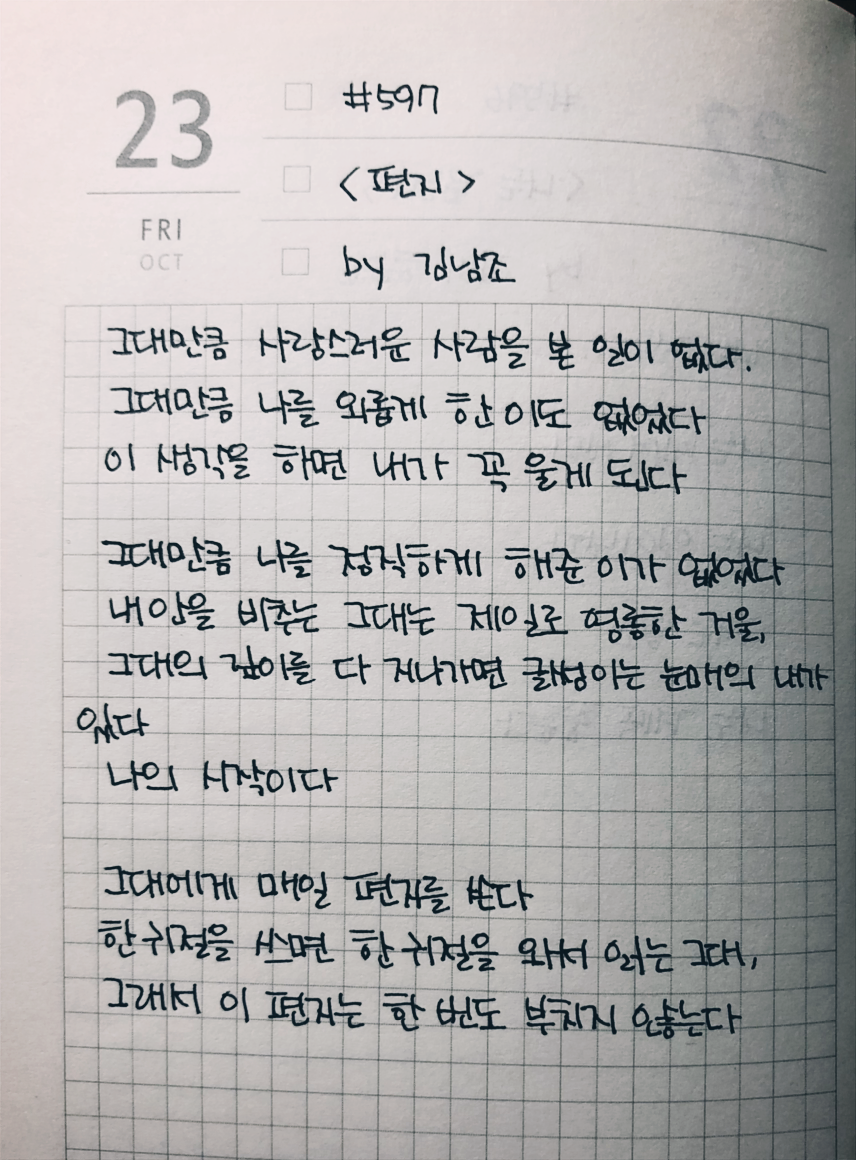 23
FRI
OCT
#597
<편지>
by 김남조
그대만큼 사랑스러운 사람을 본 일이 없다.
그대만큼 나를 외롭게 한 이도 없었다
이 생각을 하면 내가 꼭 울게 된다
그대만큼 나를 정직하게 해준 이가 없었다
내 안을 비추는 그대는 제일로 영롱한 거울,
그대의 깊이를 다 지나가면 글썽이는 눈매의 내가
있다
나의 시작이다
그대에게 매일 편지를 쓴다
한 귀절을 쓰면 한 귀절을 와서 읽는 그대,
그래서 이 편지는 한 번도 부치지 않는다